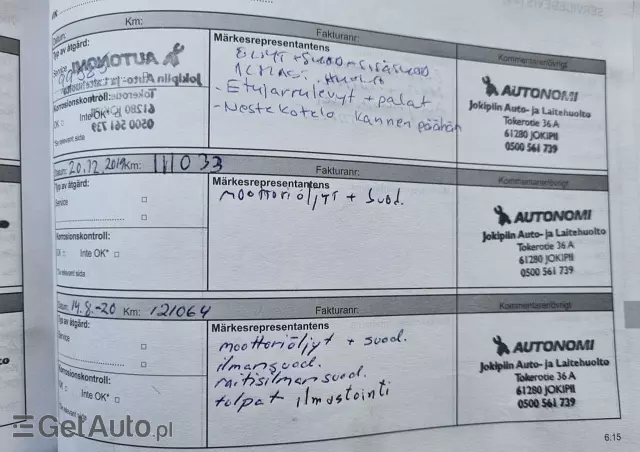 Datum:
Km:
Fakturanr:
Kommentarer/övrigt
Typ av åtgärd:
Service
Märkesrepresentantens
- Etujarrulevyt + palat
- Nestekotelo kannen päähän
AUTONOMI
Jokipiin Auto- ja Laitehuolto
Tokerotie 36 A
61280 JOKIPII
0500 561 739
Korrosionskontroll:
OK Inte OK*
*Se relevant sida
Datum: 20.12.2019 Km: 111033
Fakturanr:
Kommentarer/övrigt
Typ av åtgärd:
Service
Märkesrepresentantens
moottoriöljyt + suod.
AUTONOMI
Jokipiin Auto- ja Laitehuolto
Tokerotie 36 A
61280 JOKIPII
0500 561 739
Korrosionskontroll:
OK Inte OK*
*Se relevant sida
Datum: 14.8.-20 Km: 121064
Fakturanr:
Kommentarer/övrigt
Typ av åtgärd:
Service
Märkesrepresentantens
moottoriöljyt + suod.
ilmansuod.
raitisilman suod.
tulpat ilmastointi
AUTONOMI
Jokipiin Auto- ja Laitehuolto
Tokerotie 36 A
61280 JOKIPII
0500 561 739
Korrosionskontroll:
OK Inte OK*
*Se relevant sida
GetAuto.pl
6:15